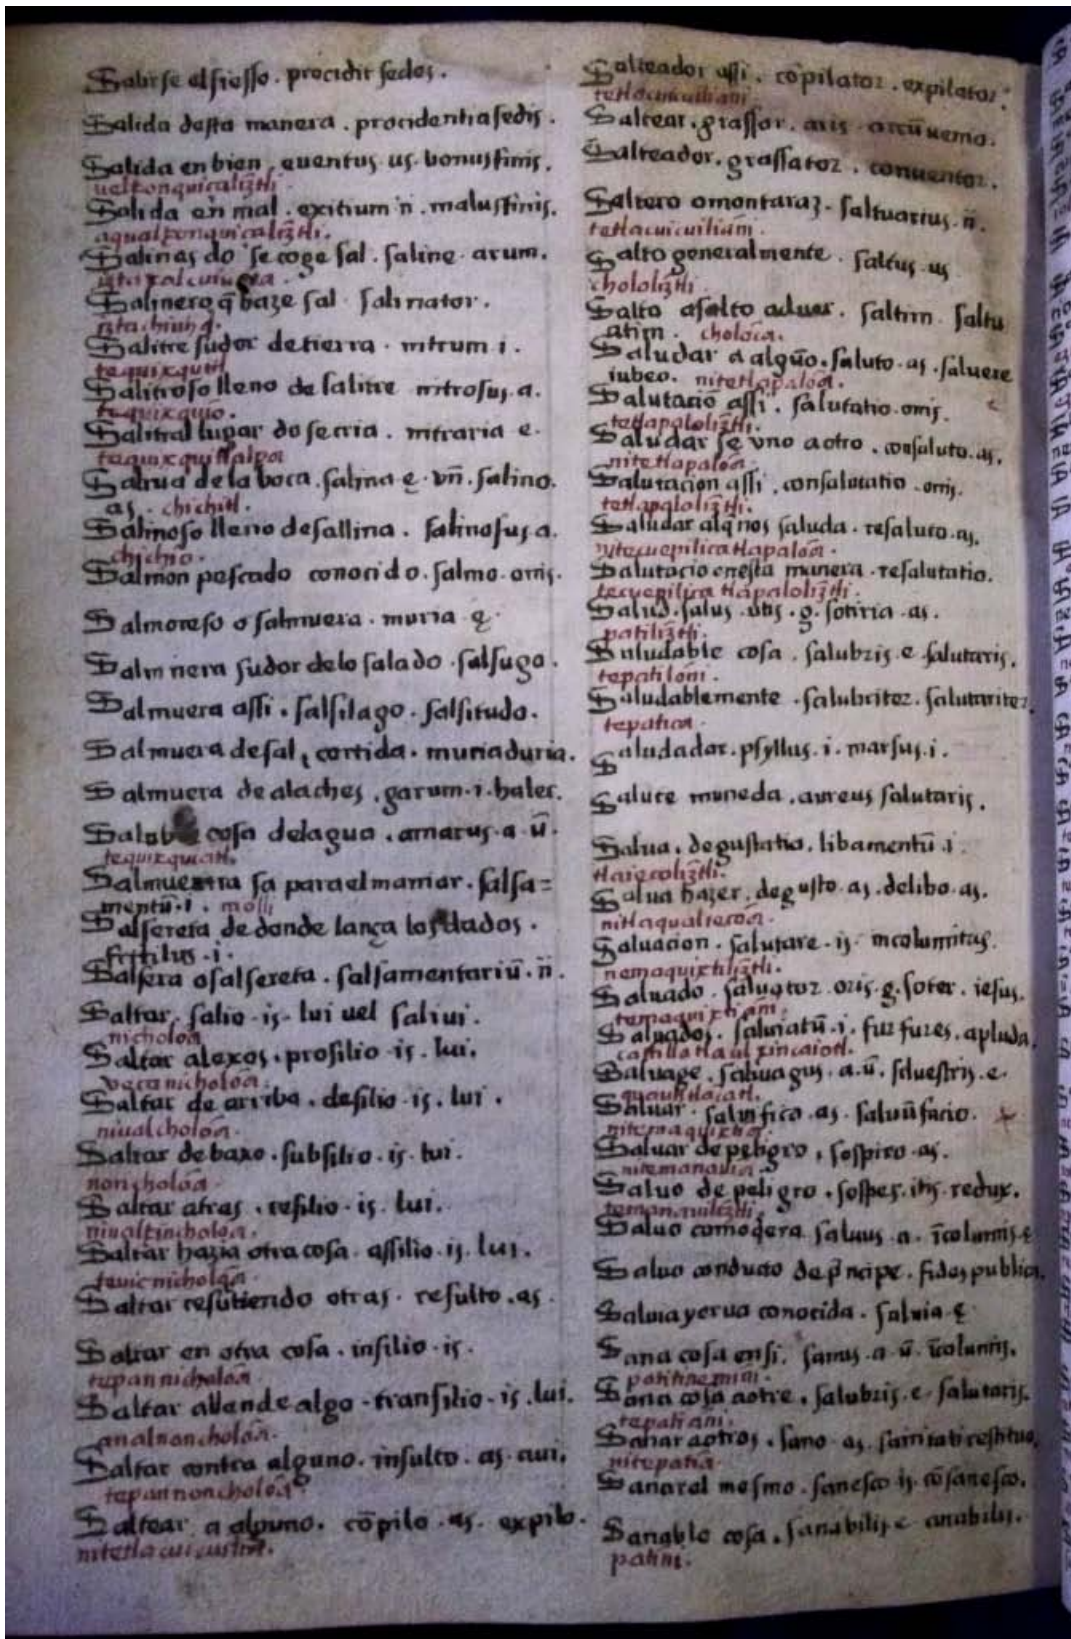 Salirse el siesso . procidit sedes .
Salida desta manera . procidentia sedis .
Salida en bien , euentus . us . bonus finis .
uel tonquicaliz̄tli .
Salida en mal . exitium . ii . malus finis .
aqual tonquicaliz̄tli .
Salinas do se coge sal . saline . arum .
Salinero q̄ haze sal . salinator .
iztachiuhq̄ .
Salitre sudor de tierra . nitrum . i .
tequixquitl
Salitroso lleno de salitre nitrosus . a .
tequixquio .
Salitral lugar do se cria . nitraria e .
tequixquitlalpa
Saliua de la boca . salina ę . vn̄ . salino .
as . chichitl .
Salinoso lleno de sallina . salinosus . a .
chichio .
Salmon pescado conocido . salmo . onis .
Salmorejo o salmuera . muria . ę
Salmuera sudor delo salado . salsugo .
Salmuera assi . salsilago . salsitudo .
Salmuera de sal , cortida . muria duria .
Salmuera de alaches . garum . i . halec .
cosa del agua . amarus . a . ū .
tequixquiatl .
Salmuera sa para el maniar . salsa=
mentū . i . molli
Salsereta de donde lança los dados .
fritilus . i .
Salsera o salsereta . salsamentariū . ii .
Saltar . salio . is . lui uel saliui .
nicholoā
Saltar alexos . prosilio . is . lui .
veca nicholoā .
Saltar de arriba . desilio . is . lui .
niualcholoā .
Saltar de baxo . subsilio . is . lui .
noncholoā .
Saltar atras . resilio . is . lui .
niualtzincholoā .
Saltar hazia otra cosa . assilio . is . lui .
teuic nicholoā .
Saltar resurtiendo otras . resulto . as .
Saltar en otra cosa . insilio . is .
tepan nicholoā
Saltar allende algo . transilio . is . lui .
analnoncholoā .
Saltar contra alguno . insulto . as . aui .
tepannoncholoā
Saltear a alguno . cōpilo . as . expilo .
nitetlacuicuilia .
Salteador assi . cōpilator . expilator .
tetlacuicuiliani
Saltear . grassor . aris .
Salteador . grassator . conuentor .
Saltero o montaraz . saltuarius . ii .
tetlacuicuiliani .
Salto generalmente . saltus . us
chololiz̄tli .
Salto a salto aduer . saltim saltu
atim . choloca .
Saludar a algūo . saluto . as . saluere
iubeo . nitetlapaloā .
Salutacio assi . salutatio . onis .
tetlapaloliz̄tli .
Saludar se vno a otro . consaluto . as .
nitetlapaloā
Salutacion assi . consalutatio . onis .
tetlapaloliz̄tli .
Saludar alq̄ nos saluda . resaluto . as .
nitecuepilica tlapaloā .
Salutacio enesta manera . resalutatio .
tecuepilica tlapaloliz̄tli .
Salud . salus . utis . g . sotiria . as .
patiliz̄tli .
Saludable cosa . salubris . e . salutaris .
tepatiloni .
Saludablemente . salubriter . salutariter
tepatica .
Saludador . psyllus . i . marsus . i .
Salute moneda . aureus salutaris .
Salua . degustatio . libamentū . i
tlaiecoliz̄tli .
Salua hazer . degusto . as . delibo . as .
nitlaqualiecoā .
Saluacion . salutare . is . incolumitas .
nemaquixtiliz̄tli .
Saluado . saluator . oris . g . soter . iesus .
temaquixtiani .
Saluados . saluiatū . i . furfures . apluda .
castillan tlaul
Saluage . saluagus . a . ū . siluestris . e .
quauhtlacatl .
Saluar . salufico . as . saluū facio .
nitemaquixtia .
Saluar de peligro . sospito . as .
nitemanauia .
Saluo de peligro . sospes . itis . redux .
temanauiliz̄tli .
Saluo comoqera . saluus . a . īcolumis . e
Saluo conducto de prīncipe . fides publica .
Saluia yerua conocida . saluia . ę
Sana cosa ensi . sanus . a . ū . īcolumis .
Sana cosa aotre . salubris . e . salutaris .
tepatiani .
Sanar aotros . sano . as . sanitati restituo .
nitepatiā
Sanarel mesmo . sanesco . is . cōsanesco .
Sanable cosa . sanabilis . e .
patini .